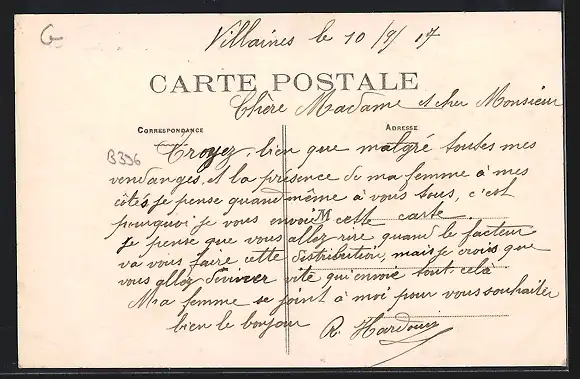 G
Villaines le 10/9/17
CARTE POSTALE
Chère Madame et cher Monsieur
CORRESPONDANCE
ADRESSE
B396
Croyez, bien que malgré toutes mes
vendanges, et la présence de ma femme à mes
côtés je pense quand même à vous tous, c'est
pourquoi je vous envoie cette carte.
M
Je pense que vous allez rire quand le facteur
va vous faire cette distribution, mais je crois que
vous allez deviner vite qui envoie tout celà
Ma femme se joint à moi pour vous souhaiter
bien le bonjour
R. Hardouin